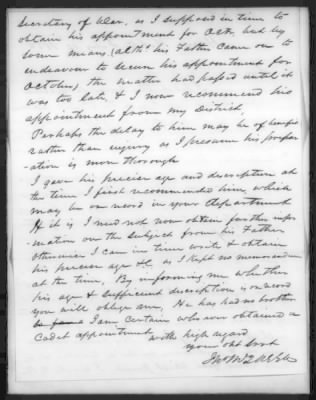 Secretary of War, as I supposed in time to
obtain his appointment for Octr, but by
some means, (altho his Father came on to
endeavour to secure his appointment for
October) the matter had passed until it
was too late, & I now recommend his
appointment from my District,
Perhaps the delay to him may be of benefit
rather than injury as I presume his prepar
-ation is more thorough
I gave his precise age and description at
the time I first recommended him, which
may be on record in your department
If it is I need not now obtain further infor
-mation on the subject from his Father
otherwise I can in time write & obtain
his precise age &c as I kept no memorandum
at the time, By informing me whether
his age & sufficient description is on record
you will oblige me, He has had no brother
I am certain who ever obtained a
Cadet appointment
with high regard
your obt Servt